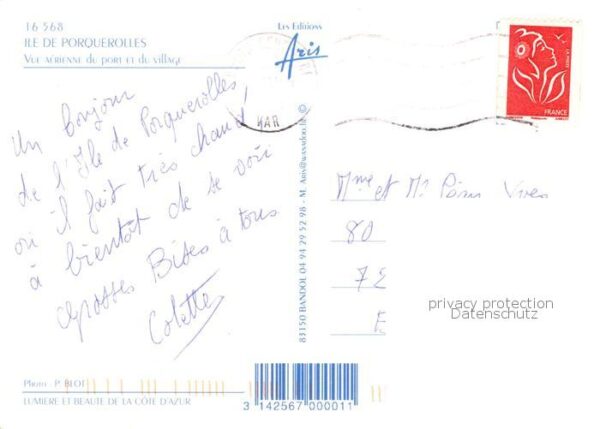 16 568
ILE DE PORQUEROLLES
VUE AÉRIENNE du PORT ET du VILLAGE
Les Editions
Aris
VAR
LA POSTE
FRANCE
Un bonjour
de l'Ile de Porquerolles,
où il fait très chaud
à bientôt de se voir
grosses Bises à tous
Colette
83150 BANDOL 04 94 29 52 98 - M. Aris@wanadoo.fr ©
Mme et Mr Vives
80
72
E
privacy protection
Datenschutz
Photo : P. BLOT
LUMIERE ET BEAUTE DE LA CÔTE D'AZUR
3 142567 000011